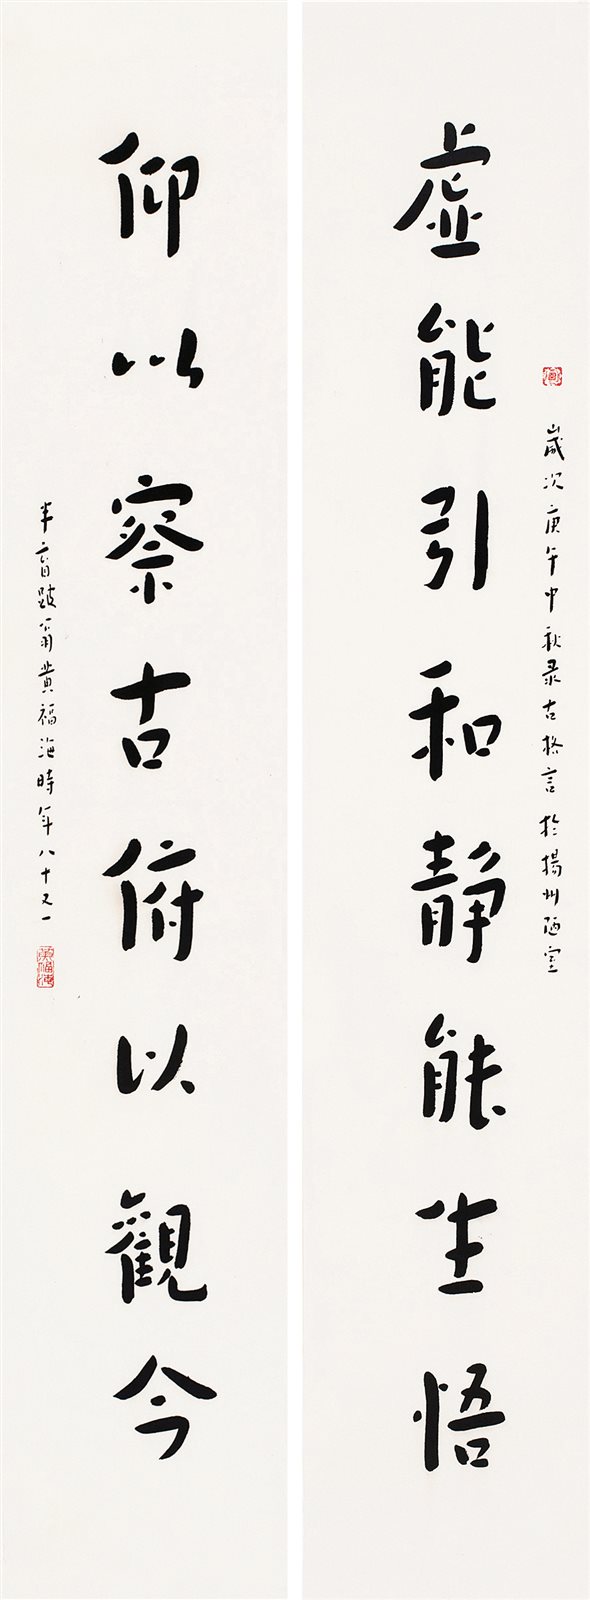 歲次庚午中秋录古格言於揚州陋室
虛能引和静能生悟
仰以察古俯以觀今
半盲跛翁黄福海時年八十又一
黄福海